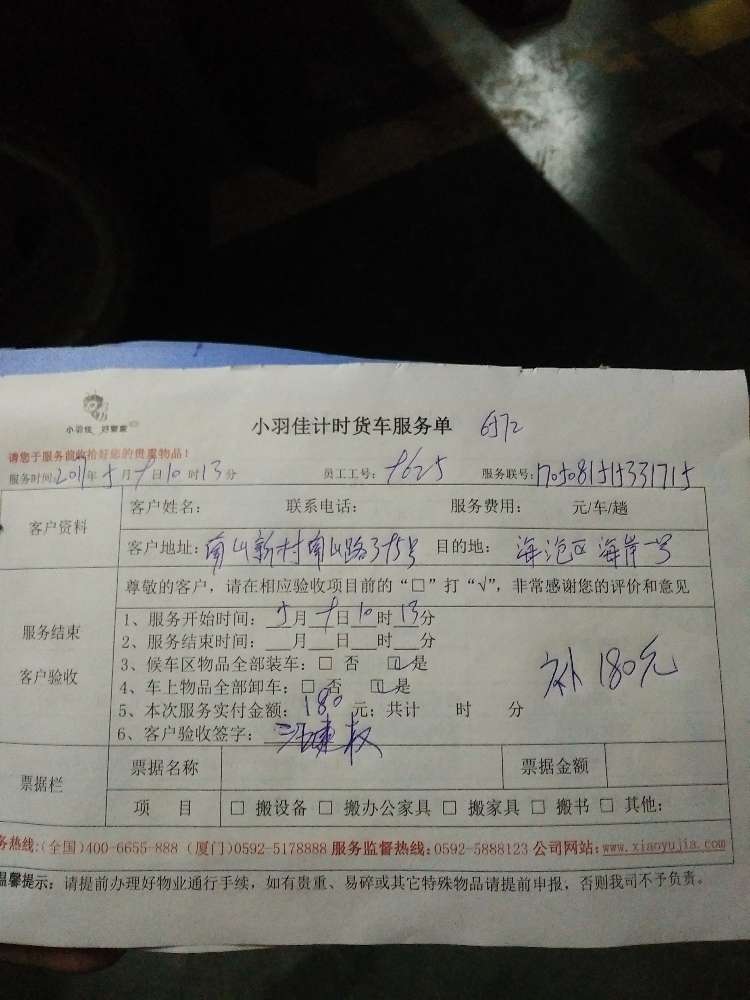 小羽佳 好管家
小羽佳计时货车服务单
请您于服务前收拾好您的贵重物品！
服务时间:2017年5月9日10时13分 员工工号: 9625 服务联号:
客户资料
客户姓名: 联系电话: 服务费用: 元/车/趟
客户地址: 南山新村南山路395号 目的地: 海沧区海岸一号
尊敬的客户，请在相应验收项目前的“□”打“√”，非常感谢您的评价和意见
服务结束
客户验收
1、服务开始时间: 5月9日10时13分
2、服务结束时间: __月__日__时__分
3、候车区物品全部装车: □ 否 ☑是
4、车上物品全部卸车: □ 否 ☑是
5、本次服务实付金额: 180 元; 共计 时 分
6、客户验收签字:
补180元
票据栏
票据名称 票据金额
项 目 □ 搬设备 □ 搬办公家具 □ 搬家具 □ 搬书 □ 其他:
务热线:(全国)400-6655-888 (厦门)0592-5178888 服务监督热线:0592-5888123 公司网站:www.xiaoyujia.com
温馨提示: 请提前办理好物业通行手续，如有贵重、易碎或其它特殊物品请提前申报，否则我司不予负责。